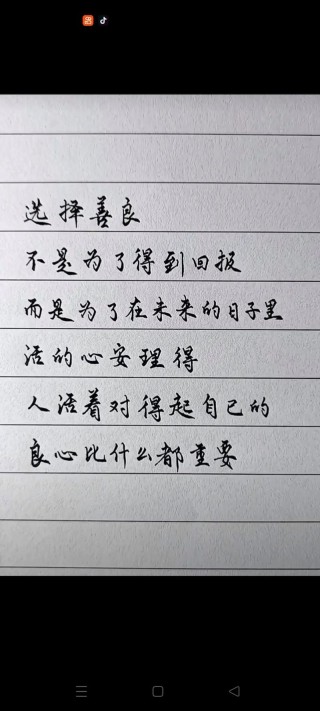 选择善良
不是为了得到回报
而是为了在未来的日子里
活的心安理得
人活着对得起自己的
良心比什么都重要